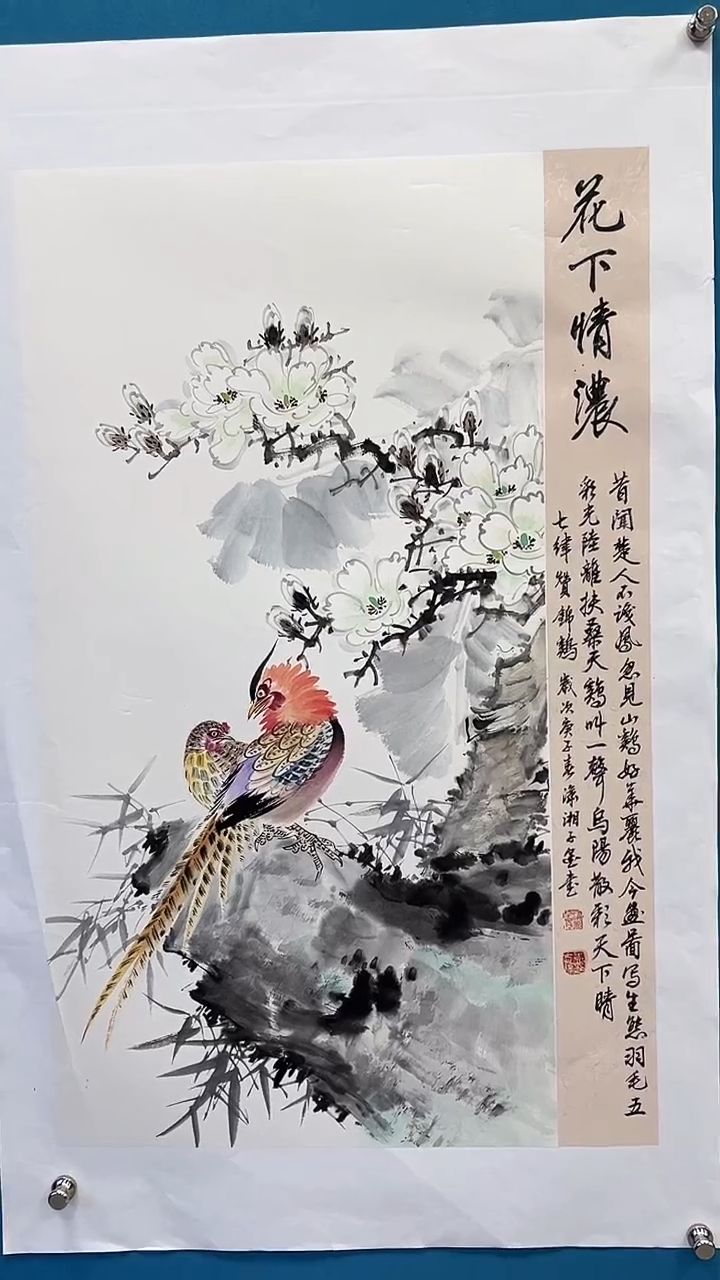 花下情濃
昔聞楚人不識鳳忽見山鷄好華麗我今畫圖寫生態羽毛五
彩光陸離扶桑天鷄叫一聲烏陽散彩天下晴
七緯贊錦鷄 歲次庚子春瀟湘子金書